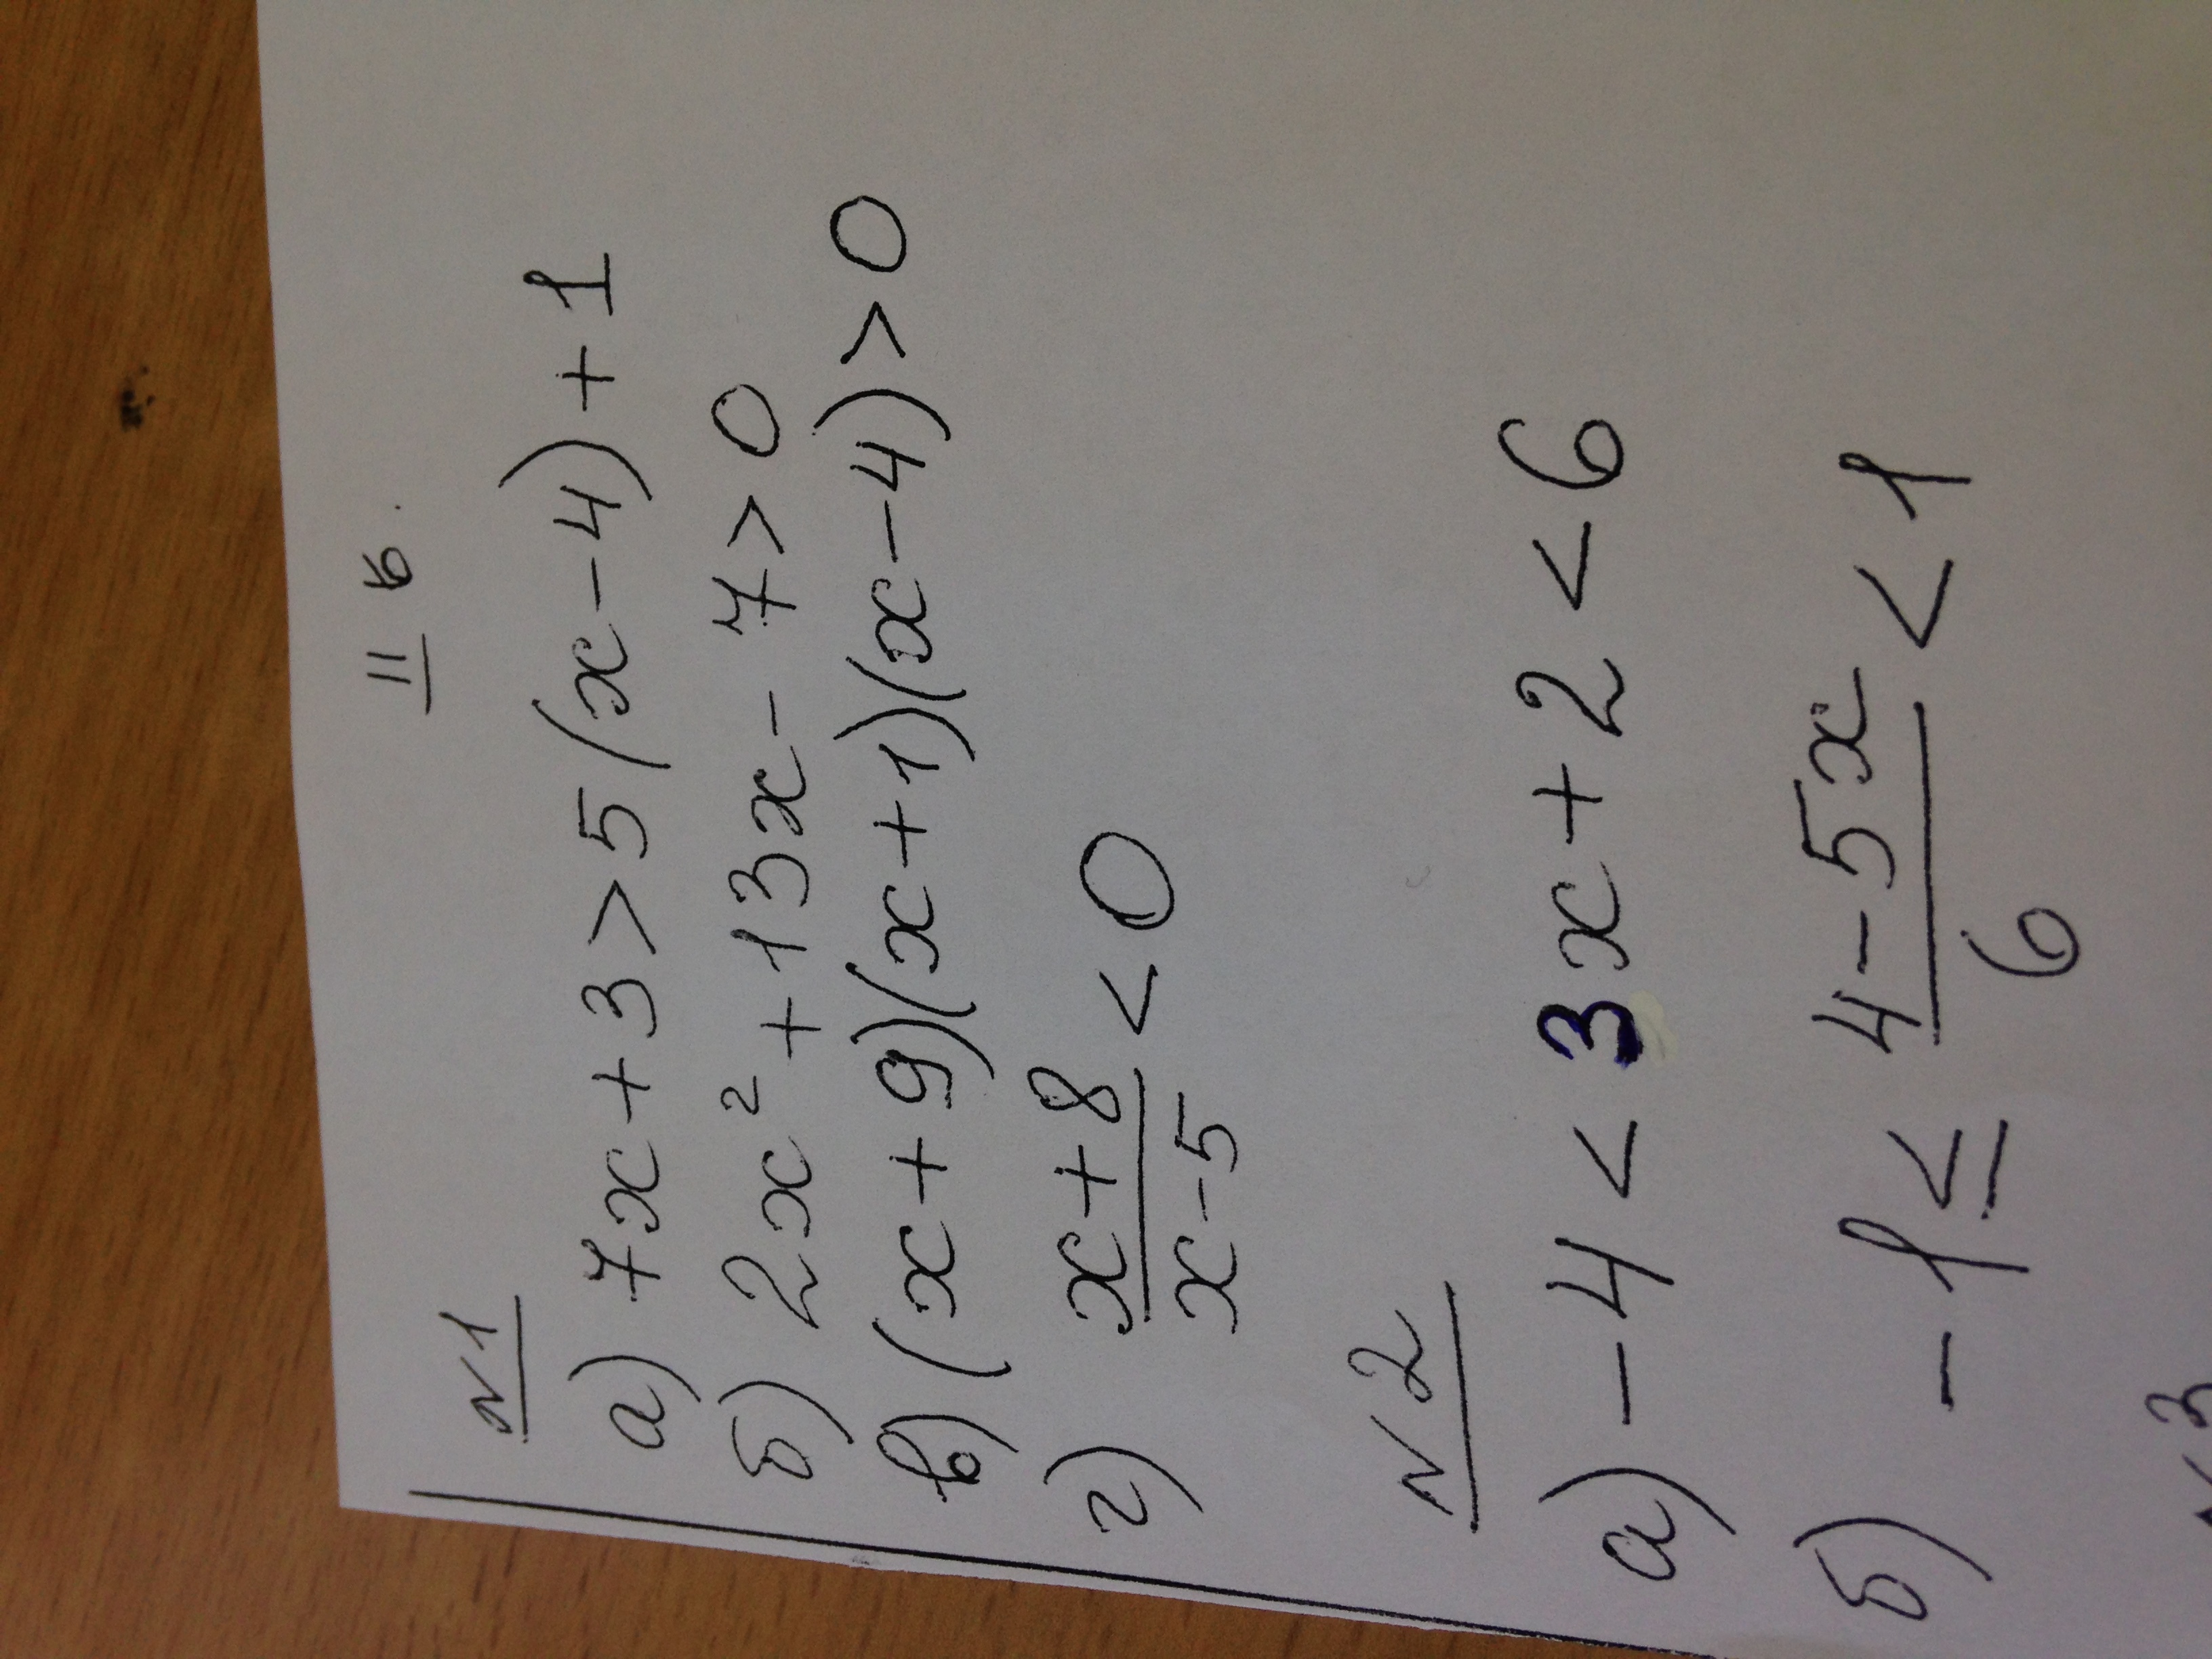 II в.
N1
а) 7x+3>5(x-4)+1
б) 2x²+13x-7>0
в) (x+9)(x+1)(x-4)>0
г) x+8/x-5 <0
N2
а) -4<3x+2<6
б) -1≤ 4-5x/6 <1
N3